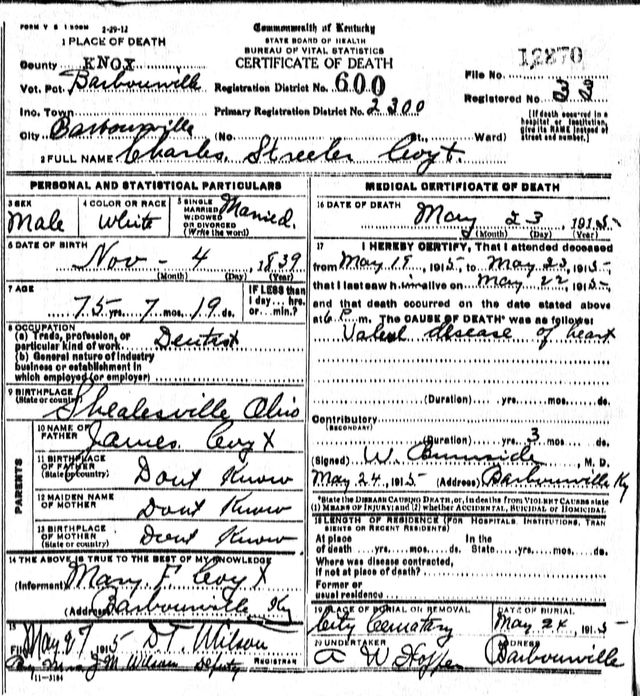 FORM V S 1 2-29-12
Commonwealth of Kentucky
STATE BOARD OF HEALTH
BUREAU OF VITAL STATISTICS
CERTIFICATE OF DEATH
1 PLACE OF DEATH
County KNOX
Vot. Pct. Barbourville
Inc. Town
City Barbourville (No. St., Ward)
Registration District No. 600
Primary Registration District No. 2300
File No. 12870
Registered No. 33
[If death occurred in a hospital or institution, give its NAME instead of street and number.]
2 FULL NAME Charles Streeter
PERSONAL AND STATISTICAL PARTICULARS
3 SEX Male
4 COLOR OR RACE White
5 SINGLE MARRIED WIDOWED OR DIVORCED (Write the word) Married.
6 DATE OF BIRTH Nov - 4 1839
(Month) (Day) (Year)
7 AGE 75 yrs. 7 mos. 19 ds.
IF LESS than 1 day... hrs. or... min.?
8 OCCUPATION
(a) Trade, profession, or particular kind of work Dentist
(b) General nature of industry business or establishment in which employed (or employer)
9 BIRTHPLACE (State or country) Shealesville Ohio
PARENTS
10 NAME OF FATHER James
11 BIRTHPLACE OF FATHER (State or country) Dont Know
12 MAIDEN NAME OF MOTHER Dont Know
13 BIRTHPLACE OF MOTHER (State or country) Dont Know
14 THE ABOVE IS TRUE TO THE BEST OF MY KNOWLEDGE
(Informant) Mary F.
(Address) Barbourville Ky
15 Filed May 27 1915 D.T. Wilson
J M Wilson Deputy REGISTRAR
11-3184
MEDICAL CERTIFICATE OF DEATH
16 DATE OF DEATH May 23, 1915
(Month) (Day) (Year)
17 I HEREBY CERTIFY, That I attended deceased
from May 18, 1915, to May 23, 1915
that I last saw him alive on May 22 1915
and that death occurred on the date stated above
at 6 P. m. The CAUSE OF DEATH* was as follows:
Valvul disease of heart
(Duration) yrs. mos. ds.
Contributory
(SECONDARY)
(Duration) yrs. 3 mos. ds.
(Signed) W. Burnside, M. D.
May 24, 1915 (Address) Barbourville Ky
*State the DISEASE CAUSING DEATH, or, in deaths from VIOLENT CAUSES state (1) MEANS OF INJURY; and (2) whether ACCIDENTAL, SUICIDAL or HOMICIDAL.
18 LENGTH OF RESIDENCE (FOR HOSPITALS, INSTITUTIONS, TRANSIENTS OR RECENT RESIDENTS)
At place of death yrs. mos. ds. In the State yrs. mos. ds.
Where was disease contracted, if not at place of death?
Former or usual residence
19 PLACE OF BURIAL OR REMOVAL City Cemetary
DATE OF BURIAL May 24, 1915
20 UNDERTAKER A W Hopper
ADDRESS Barbourville